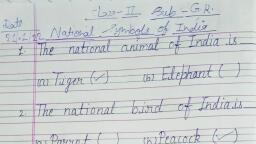 Sub - G.K.
Date
National Symbols of India
1. The national animal of India is
(a) Tiger (✓) (b) Elephant ( )
2. The national bird of India is
(a) Parrot ( ) (b) Peacock (✓)